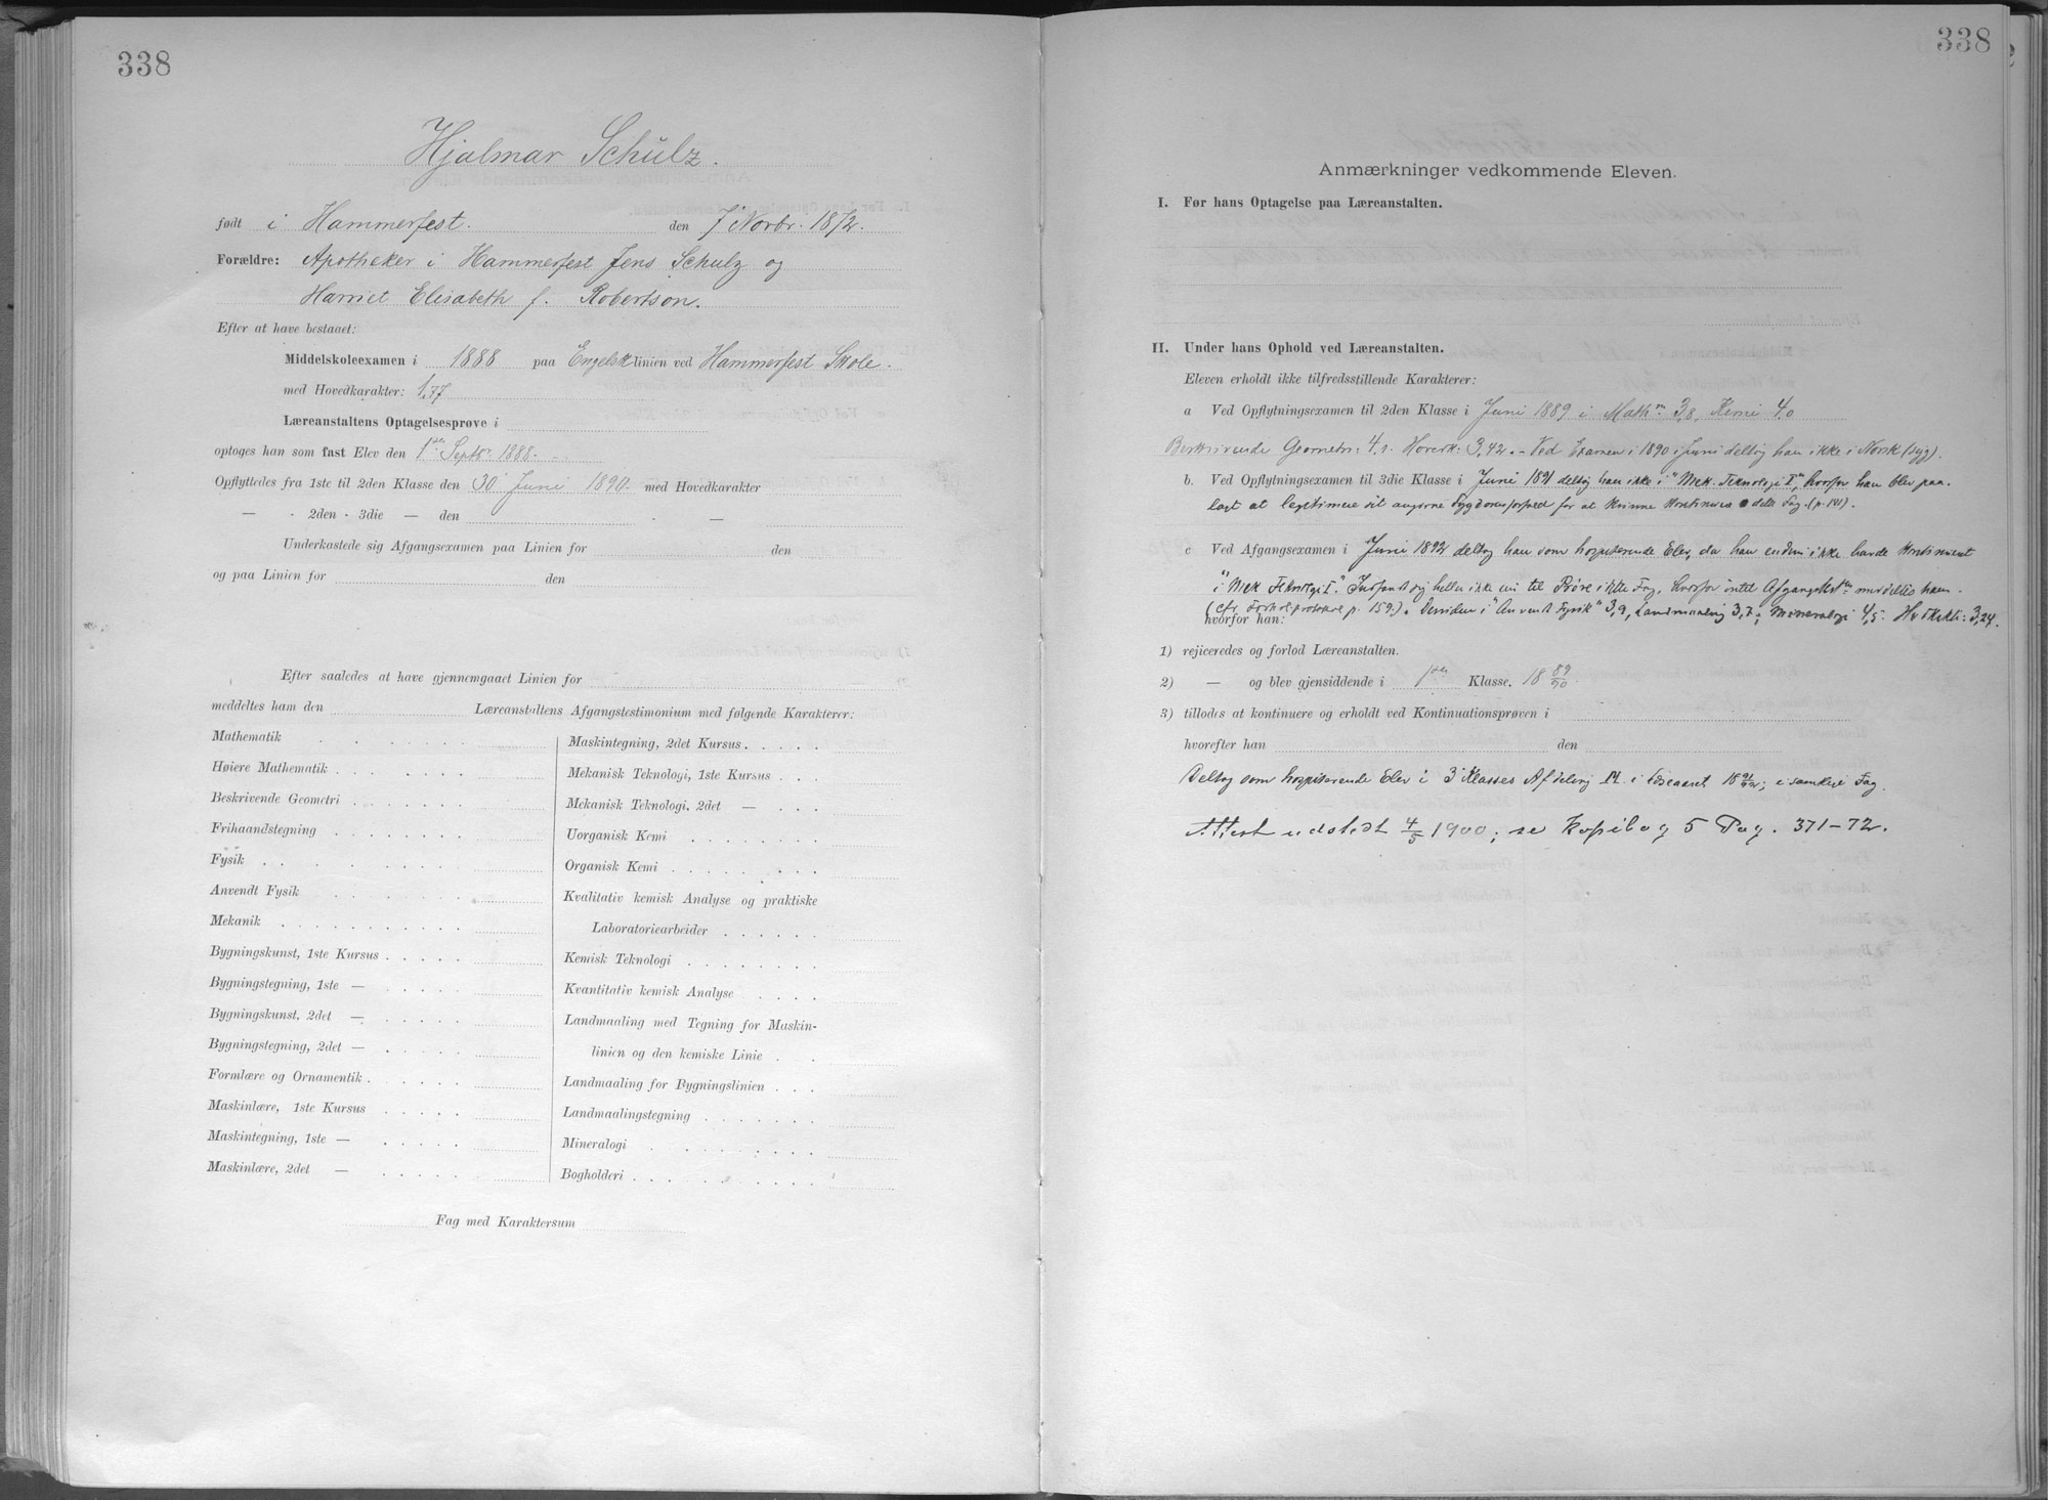 338
Hjalmar Schulz.
født i Hammerfest. den 7 Novbr. 1872.
Forældre: Apotheker i Hammerfest Jens Schulz og
Harriet Elisabeth f. Robertson.
Efter at have bestaaet:
Middelskoleexamen i 1888 paa Engelsk linien ved Hammerfest Skole.
med Hovedkarakter: 1,77
Læreanstaltens Optagelsesprøve i
optoges han som fast Elev den 1ste Septbr 1888.
Opflyttedes fra 1ste til 2den Klasse den 30 Juni 1890. med Hovedkarakter
— · 2den · 3die — den —
Underkastede sig Afgangsexamen paa Linien for den
og paa Linien for den
Efter saaledes at have gjennemgaaet Linien for
meddeltes ham den Læreanstaltens Afgangstestimonium med følgende Karakterer:
Mathematik
Høiere Mathematik
Beskrivende Geometri
Frihaandstegning
Fysik
Anvendt Fysik
Mekanik
Bygningskunst, 1ste Kursus
Bygningstegning, 1ste —
Bygningskunst, 2det —
Bygningstegning, 2det —
Formlære og Ornamentik
Maskinlære, 1ste Kursus
Maskintegning, 1ste —
Maskinlære, 2det —
Maskintegning, 2det Kursus
Mekanisk Teknologi, 1ste Kursus
Mekanisk Teknologi, 2det —
Uorganisk Kemi
Organisk Kemi
Kvalitativ kemisk Analyse og praktiske
Laboratoriearbeider
Kemisk Teknologi
Kvantitativ kemisk Analyse
Landmaaling med Tegning for Maskin-
linien og den kemiske Linie
Landmaaling for Bygningslinien
Landmaalingstegning
Mineralogi
Bogholderi
Fag med Karaktersum
338
Anmærkninger vedkommende Eleven.
I. Før hans Optagelse paa Læreanstalten.
II. Under hans Ophold ved Læreanstalten.
Eleven erholdt ikke tilfredsstillende Karakterer:
a Ved Opflytningsexamen til 2den Klasse i Juni 1889 i Mathm 3,8, Kemi 4,0
Beskrivende Geometri: 4,1. Hovedk: 3,42. – Ved Examen i 1890 i Juni deltog han ikke i Norsk (syg).
b. Ved Opflytningsexamen til 3die Klasse i Juni 1891 deltog han ikke i "Mek. Teknologi I", hvorfor han blev paa-
lagt at legitimere sit angivne Sygdomsforfald for at kunne kontinuere i dette Fag. (p. 141).
c Ved Afgangsexamen i Juni 1892 deltog han som hospiterende Elev, da han endnu ikke havde kontinueret
i "Mek Teknologi I". Indfandt sig heller ikke nu til Prøve i dette Fag, hvorfor intet Afgangstestm meddeltes ham.
(cfr. Forh.sprotokol p. 159). Desuden i "Anvendt Fysik" 3,9, Landmaaling 3,7, Mineralogi 4,5. Hovedkakt: 3,24.
hvorfor han:
1) rejiceredes og forlod Læreanstalten.
2) — og blev gjensiddende i 1ste Klasse. 18 89/90.
3) tillodes at kontinuere og erholdt ved Kontinuationsprøven i
hvorefter han den
Deltog som hospiterende Elev i 3 Klasses Afdeling M. i Læseaaret 18 91/92; i samtlige Fag.
Attest udstedt 4/5 1900; se Kopibog 5 Pag. 371–72.